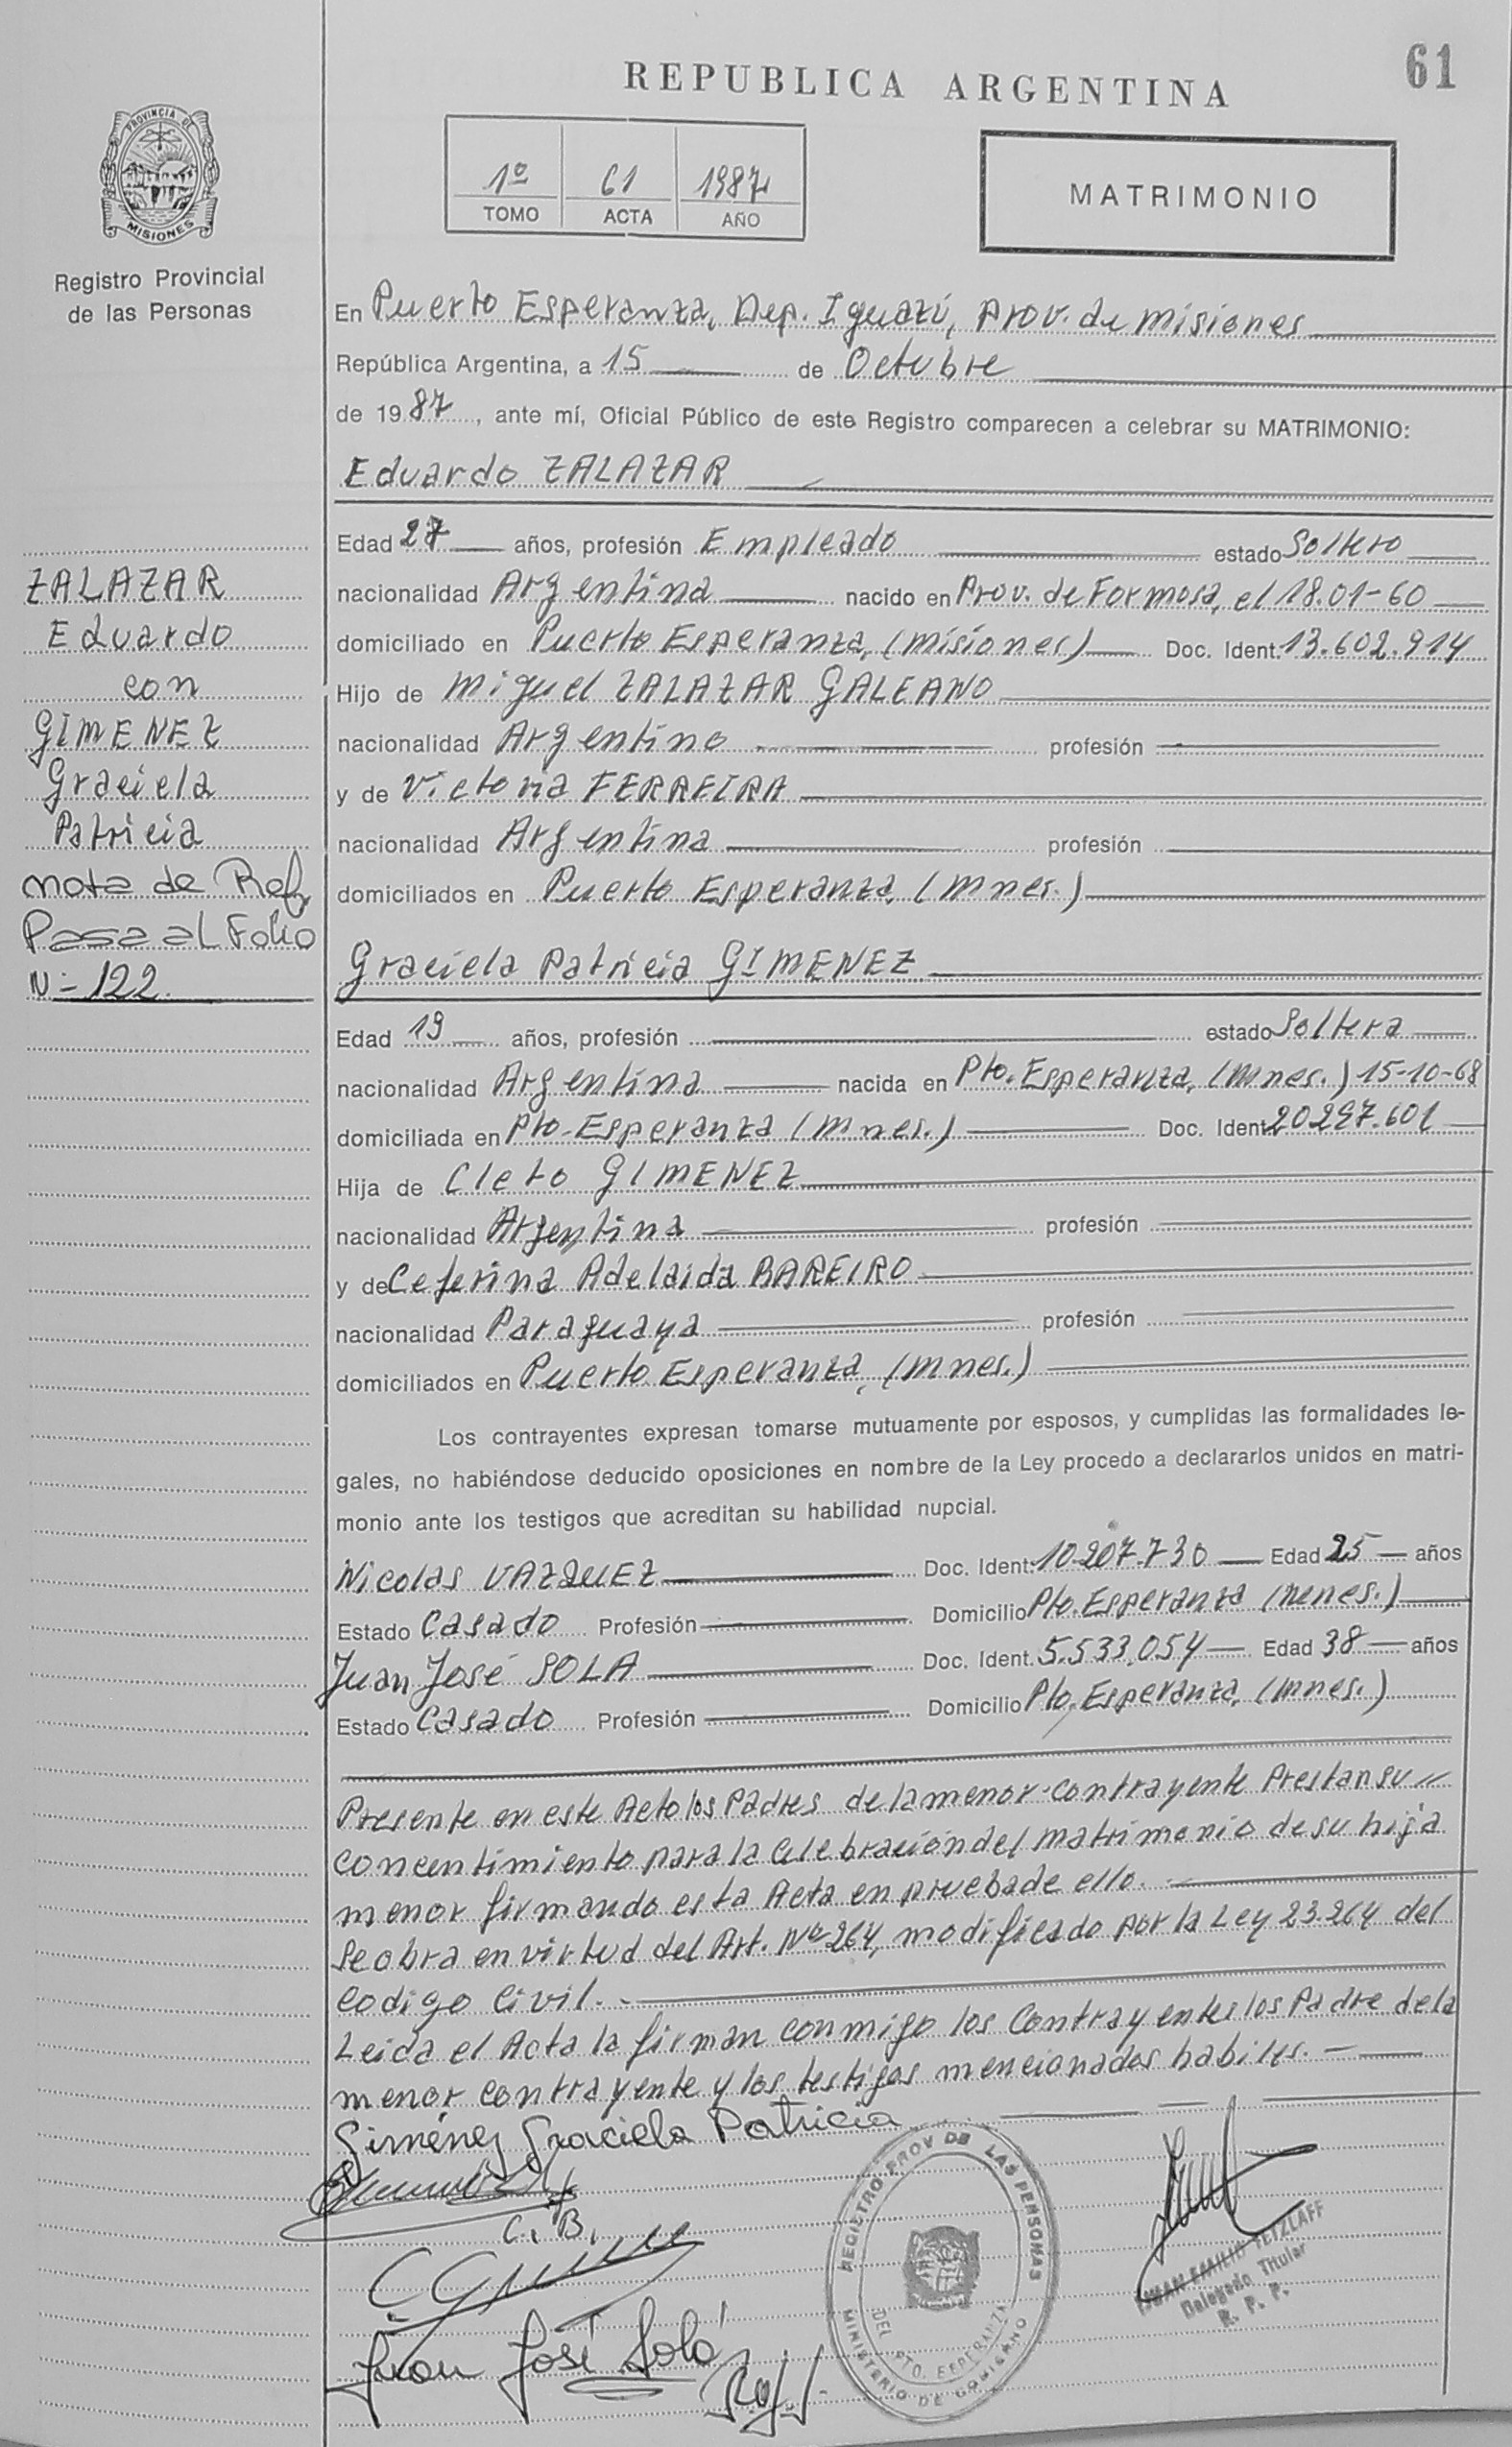 61
REPUBLICA ARGENTINA
PROVINCIA DE
MISIONES
Registro Provincial
de las Personas
1º 61 1987
TOMO ACTA AÑO
MATRIMONIO
En Puerto Esperanza, Dep. Iguazú, Prov. de Misiones
República Argentina, a 15 de Octubre
de 1987, ante mí, Oficial Público de este Registro comparecen a celebrar su MATRIMONIO:
Eduardo ZALAZAR
Edad 27 años, profesión Empleado estado Soltero
nacionalidad Argentina nacido en Prov. de Formosa, el 18.01-60
domiciliado en Puerto Esperanza, (Misiones) Doc. Ident. 13.602.914
Hijo de Miguel ZALAZAR GALEANO
nacionalidad Argentino profesión
y de Victoria FERREIRA
nacionalidad Argentina profesión
domiciliados en Puerto Esperanza, (Mnes.)
ZALAZAR
Eduardo
con
GIMENEZ
Graciela
Patricia
Nota de Ref
Pasa al Folio
N- 122.
Graciela Patricia GIMENEZ
Edad 19 años, profesión estado Soltera
nacionalidad Argentina nacida en Pto. Esperanza, (Mnes.) 15-10-68
domiciliada en Pto. Esperanza (Mnes.) Doc. Ident. 20.297.601
Hija de Cleto GIMENEZ
nacionalidad Argentina profesión
y de Ceferina Adelaida BAREIRO
nacionalidad Paraguaya profesión
domiciliados en Puerto Esperanza, (Mnes.)
Los contrayentes expresan tomarse mutuamente por esposos, y cumplidas las formalidades le-
gales, no habiéndose deducido oposiciones en nombre de la Ley procedo a declararlos unidos en matri-
monio ante los testigos que acreditan su habilidad nupcial.
Nicolas VAZQUEZ Doc. Ident. 10.207.730 Edad 25 años
Estado Casado Profesión Domicilio Pto. Esperanza (Mnes.)
Juan José SOLA Doc. Ident. 5.533.054 Edad 38 años
Estado Casado Profesión Domicilio Pto. Esperanza, (Mnes.)
Presente en este Acto los Padres de la menor contrayente Prestan su //
concentimiento para la Celebración del matrimonio de su hija
menor firmando esta Acta en prueba de ello. -
Se obra en virtud del Art. Nº 264, modificado por la Ley 23.264 del
Codigo Civil. -
Leida el Acta la firman conmigo los Contrayentes los Padre de la
menor contrayente y los testigos mencionados habiles. -
Giménez Graciela Patricia
C. B.
Juan José Solá
REGISTRO PROV DE LAS PERSONAS
DEL PTO. ESPERANZA
MINISTERIO DE GOBIERNO
JUAN EMILIO TETZLAFF
Delegado Titular
R. P. P.